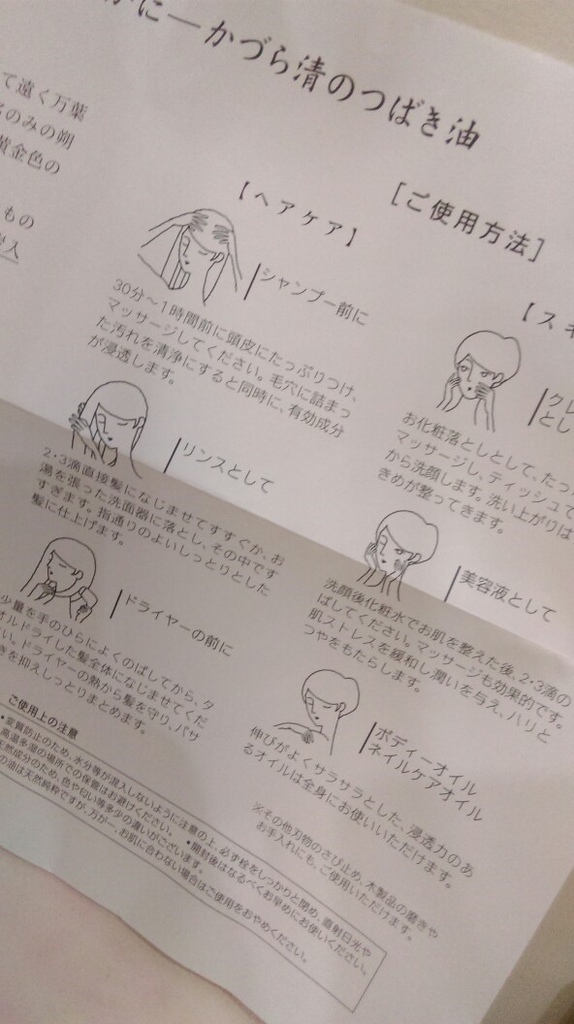 かに―かづら清のつばき油
て遠く万葉
名のみの朔
黄金色の
もの
[ご使用方法]
【ヘアケア】
シャンプー前に
30分～1時間前に頭皮にたっぷりつけ、
マッサージしてください。毛穴に詰まっ
た汚れを清浄にすると同時に、有効成分
が浸透します。
リンスとして
2・3滴直接髪になじませてすすぐか、お
湯を張った洗面器に落とし、その中です
すぎます。指通りのよいしっとりとした
髪に仕上げます。
ドライヤーの前に
少量を手のひらによくのばしてから、タ
オルドライした髪全体になじませてくだ
い。ドライヤーの熱から髪を守り、パサ
きを抑えしっとりまとめます。
【スキ
クレ
とし
お化粧落としとして、たっ
マッサージし、ティッシュで
から洗顔します。洗い上がりは
きめが整ってきます。
美容液として
洗顔後化粧水でお肌を整えた後、2・3滴の
ばしてください。マッサージも効果的です。
肌ストレスを緩和し潤いを与え、ハリと
つやをもたらします。
ボディーオイル
ネイルケアオイル
伸びがよくサラサラとした、浸透力のあ
るオイルは全身にお使いいただけます。
※その他刃物のさび止め、木製品の磨きや
お手入れにも、ご使用いただけます。
ご使用上の注意
•変質防止のため、水分等が混入しないように注意の上、必ず栓をしっかりと閉め、直射日光や
高温多湿の場所での保管はお避けください。 •開封後はなるべくお早めにお使いください。
天然成分のため、色や匂い等多少の違いがございます。
の油は天然純粋ですが、万が一、お肌に合わない場合はご使用をおやめください。